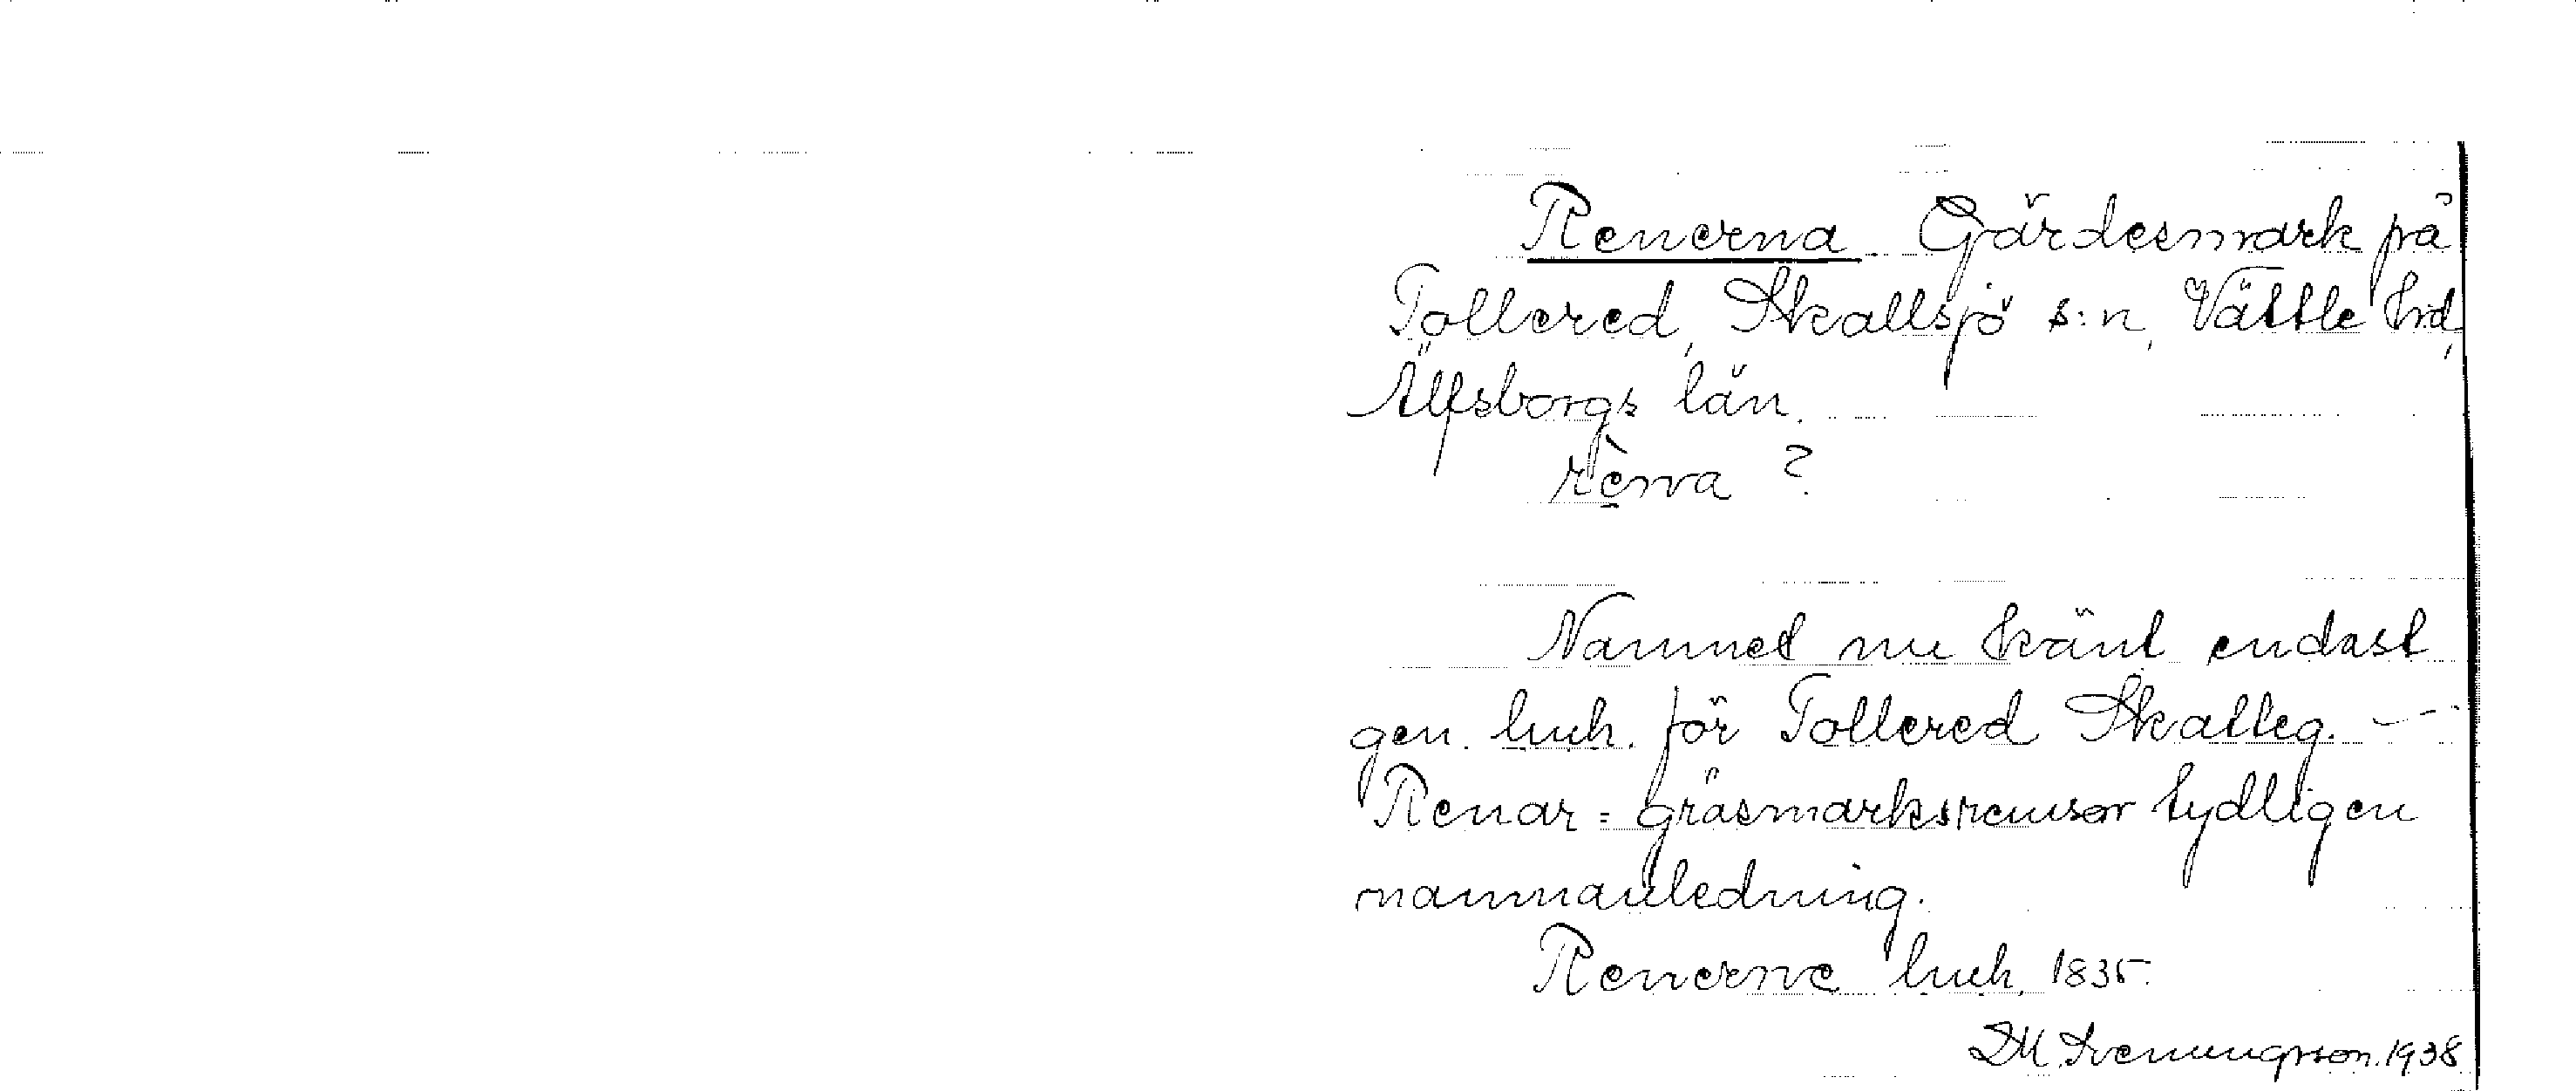 Renerna Gärdesmark på
Tollered, Skallsjö s:n, Vättle hd,
Älfsborgs län.
rèṇa ?
Namnet nu känt endast
gen. lmh. för Tollered Skatteg. —
Renar = gräsmarksremsor tydligen
namnanledning.
Renerne lmh. 1835.
D.M. Svenungsson. 1938